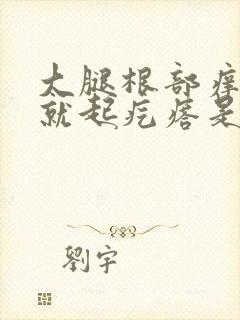 大腿根部痒
就起疙瘩是
劉宇